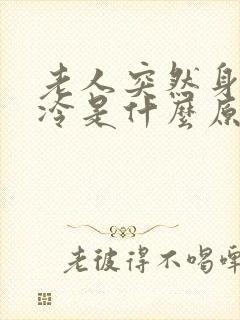 老人突然身
冷是什麼原
老彼得不喝啤